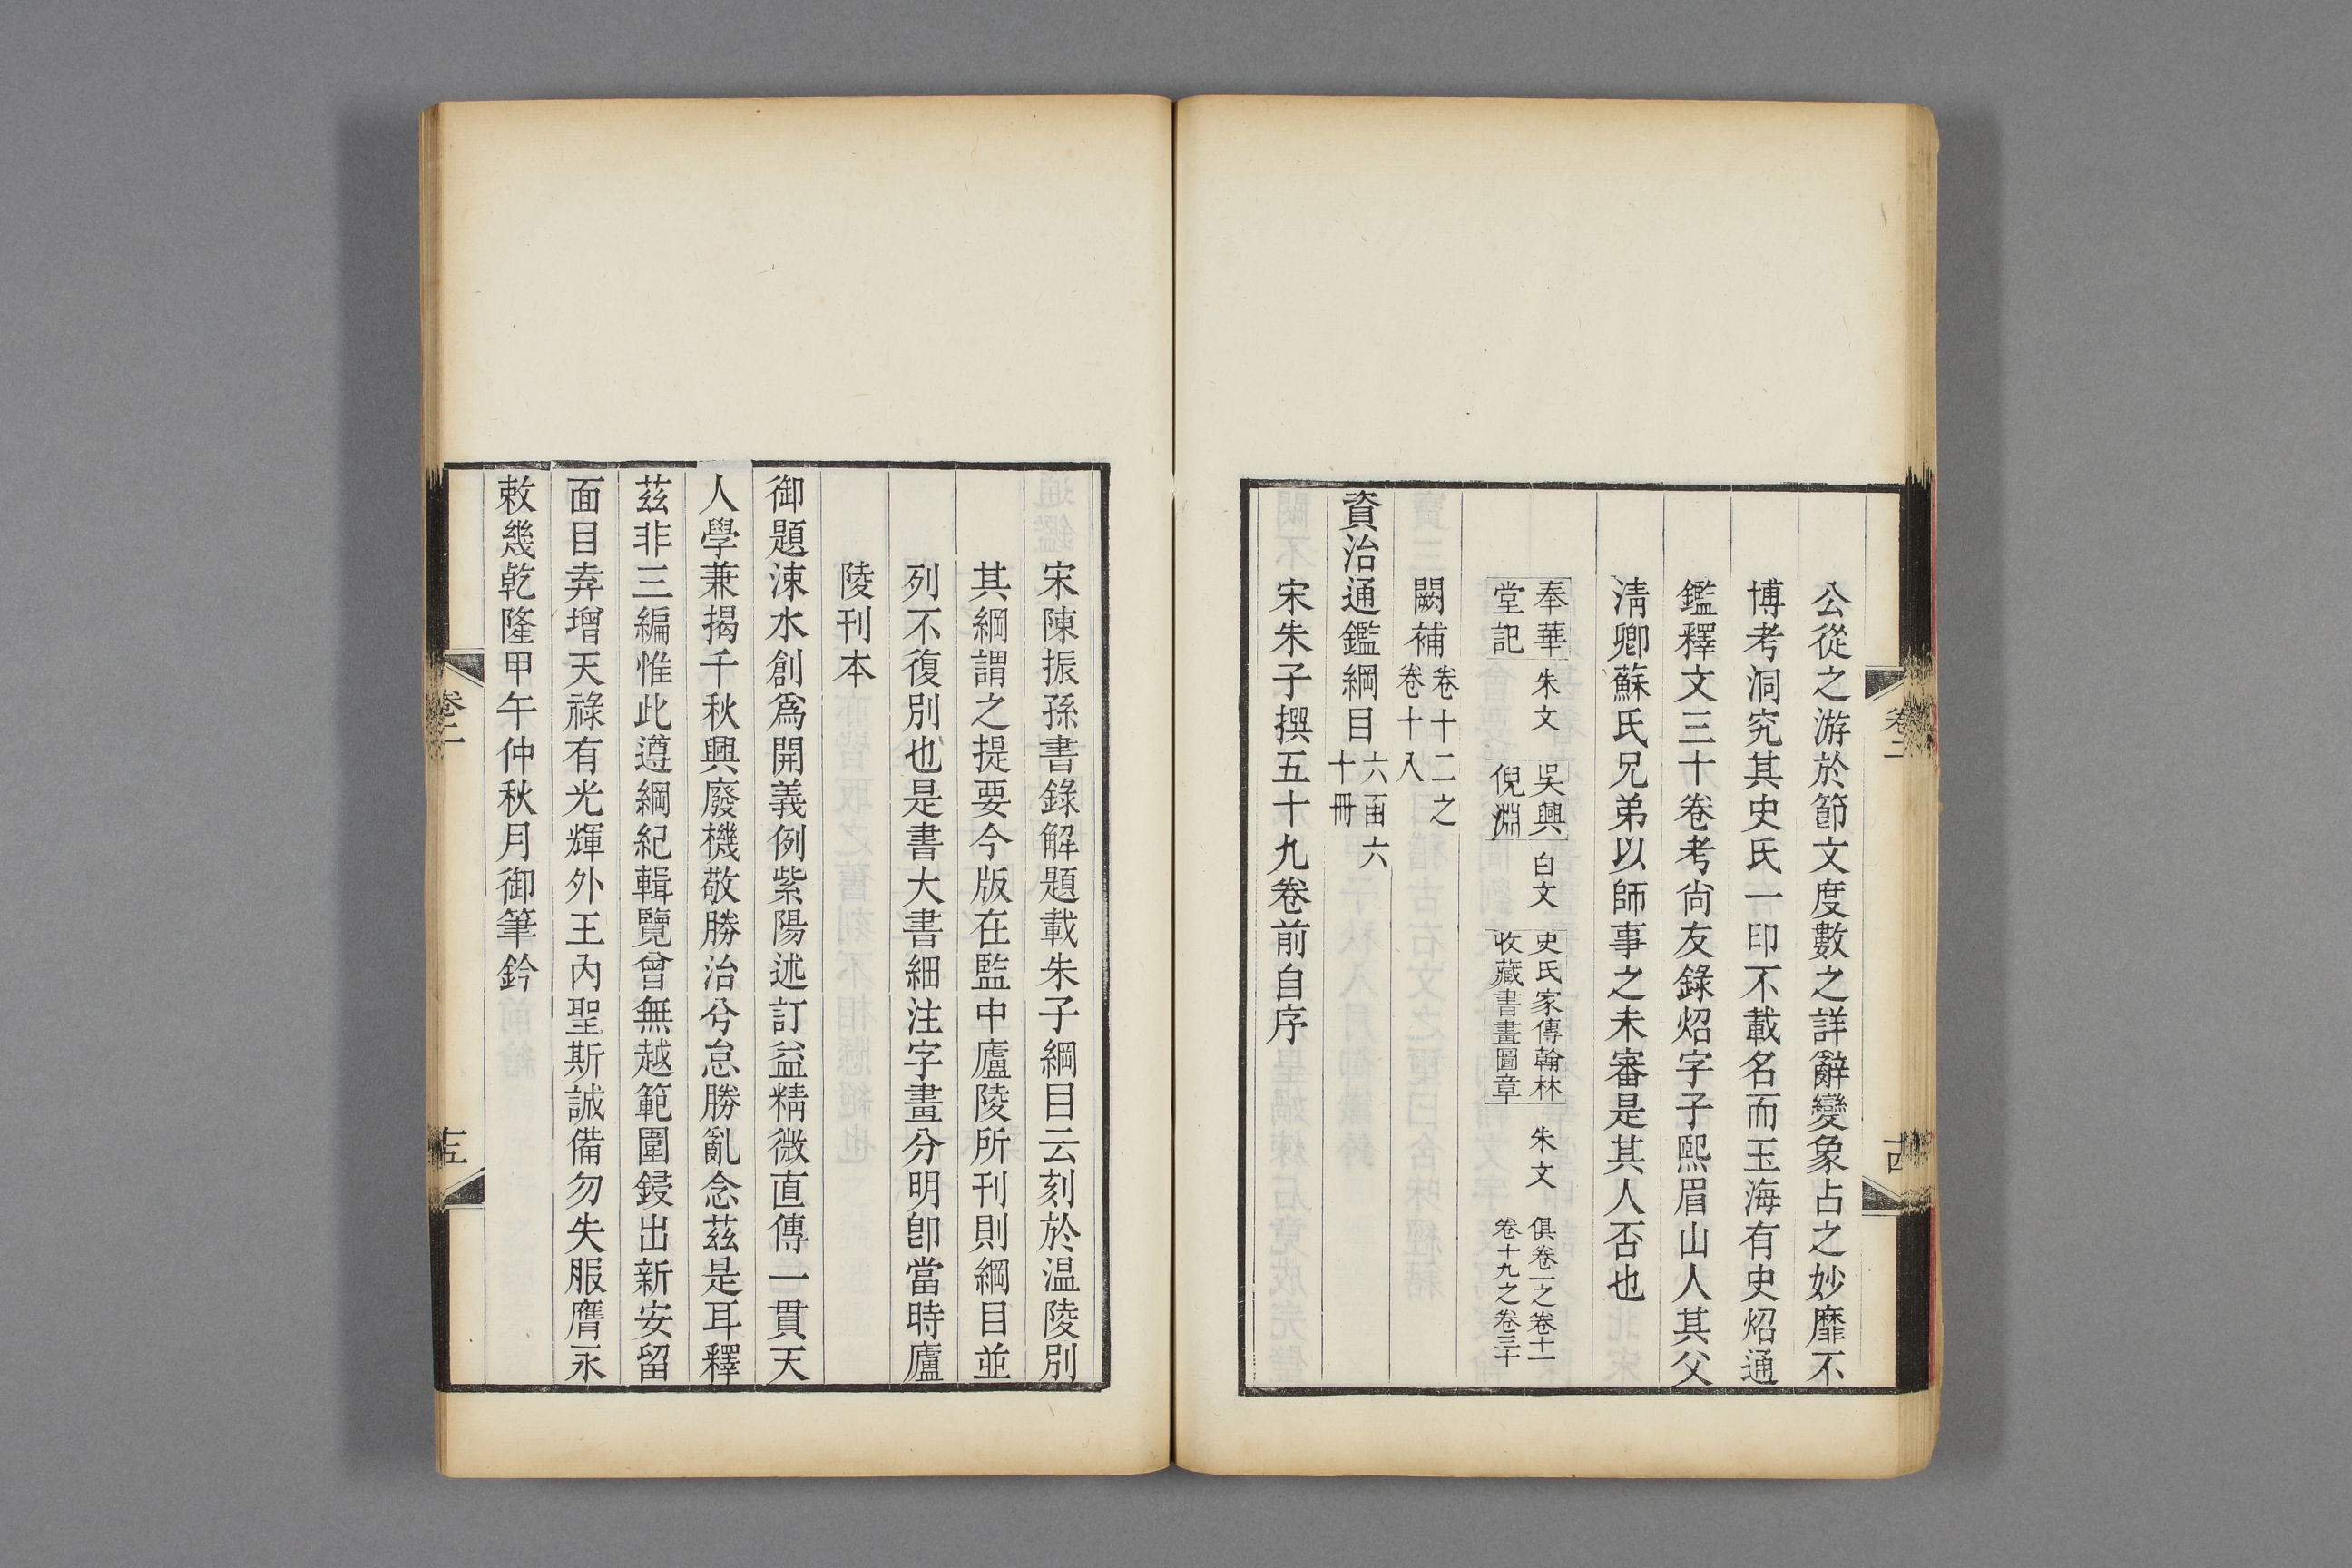 公從之游於節文度數之詳辭變象占之妙靡不
博考洞究其史氏一印不載名而玉海有史炤通
鑑釋文三十卷考尚友錄炤字子熙眉山人其父
淸卿蘇氏兄弟以師事之未審是其人否也
奉華堂記 朱文 吳興倪淵 白文 史氏家傳翰林收藏書畫圖章 朱文 俱卷一之卷十一卷十九之卷三十
闕補 卷十二之卷十八
資治通鑑綱目 六函六十冊
宋朱子撰五十九卷前自序
卷二
十四
宋陳振孫書錄解題載朱子綱目云刻於温陵別
其綱謂之提要今版在監中廬陵所刊則綱目並
列不復別也是書大書細注字畫分明卽當時廬
陵刊本
御題涑水創爲開義例紫陽述訂益精微直傳一貫天
人學兼揭千秋興廢機敬勝治兮怠勝亂念茲是耳釋
茲非三編惟此遵綱紀輯覽曾無越範圍鋟出新安留
面目弆增天祿有光輝外王內聖斯誠備勿失服膺永
敕幾乾隆甲午仲秋月御筆鈐
卷二
十五